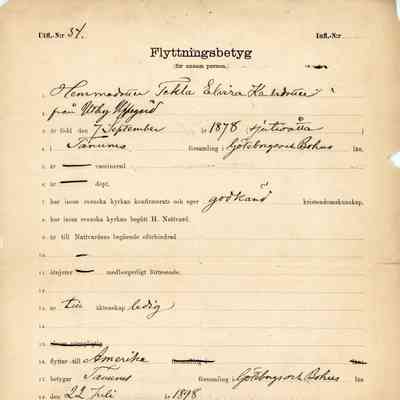 Utfl.-N:r 34. Infl.-N:r
Flyttningsbetyg
(för ensam person.)
1. Hemmadotter Tekla Elvira
2. från Utby Nygård
3. är född den 7 September år 1878 sjuttioåtta
4. i Tanums församling i Göteborgs och Bohus län.
5. är — vaccinerad
6. är — döpt.
7. har inom svenska kyrkan konfirmerats och eger godkänd kristendomskunskap.
8. har inom svenska kyrkan begått H. Nattvard.
9. är till Nattvardens begående oförhindrad
10.
11. åtnjuter — medborgerligt förtroende.
12.
13. är till äktenskap ledig
14.
15.
16. flyttar till Amerika församling i län.
17. betygar Tanums församling i Göteborgs och Bohus län.
18. den 22 Juli 1898